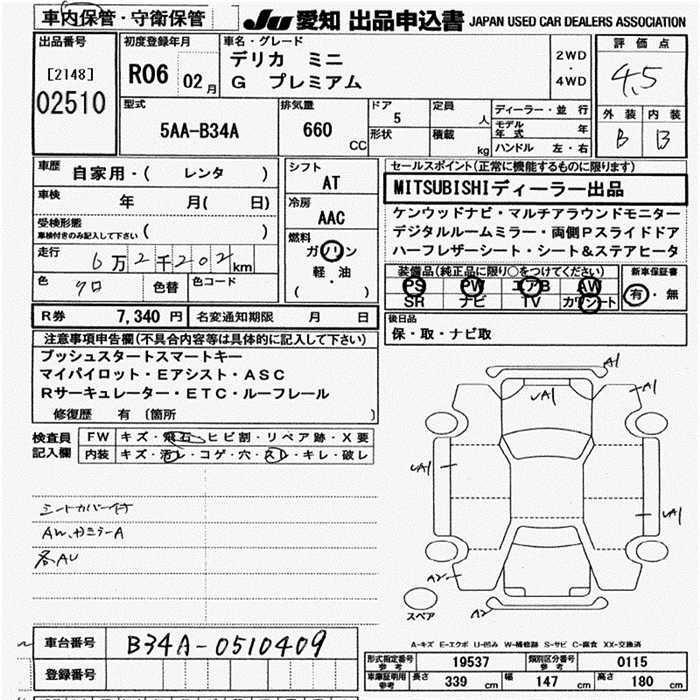 車内保管・守衛保管
JU 愛知 出品申込書 JAPAN USED CAR DEALERS ASSOCIATION
出品番号
[2148]
02510
初度登録年月
R06 02月
車名・グレード
デリカ ミニ
G プレミアム
2WD
・
4WD
評価点
4.5
外装 内装
B B
型式
5AA-B34A
排気量
660
CC
ドア
5
形状
定員
人
積載
kg
ディーラー・並行
モデル年式 年
ハンドル 左・右
車歴
自家用・( レンタ )
車検
年 月( 日)
受検形態
車検付きのみ記入して下さい ( )
走行
6万2千202km
色
クロ
色替
色コード
シフト
AT
冷房
AAC
燃料
ガソリン
軽・油
( )
セールスポイント(正常に機能するものに限ります)
MITSUBISHIディーラー出品
ケンウッドナビ・マルチアラウンドモニター
デジタルルームミラー・両側Pスライドドア
ハーフレザーシート・シート&ステアヒータ
装備品(純正品に限り○をつけてください)
PS PW エアB AW
SR ナビ TV カワシート
新車保証書
有・無
R券 7,340 円
名変通知期限 月 日
後日品
保・取・ナビ取
注意事項申告欄(不具合内容等は具体的に記入して下さい)
プッシュスタートスマートキー
マイパイロット・Eアシスト・ASC
Rサーキュレーター・ETC・ルーフレール
修復歴 有 〔箇所 〕
検査員記入欄
FW キズ・飛石・ヒビ割・リペア跡・X要
内装 キズ・汚レ・コゲ・穴・スレ・キレ・破レ
シートカバー付
AW、カミラーA
各AU
A1
A1
A1
A1
A1
A2
A2
スペア
A-キズ E-エクボ U-凹み W-補修跡 S-サビ C-腐食 XX-交換済
車台番号
B34A-0510409
登録番号
形式指定番号 参考 19537
類別区分番号 参考 0115
車庫証明用 参考
長さ 339 cm 幅 147 cm 高さ 180 cm